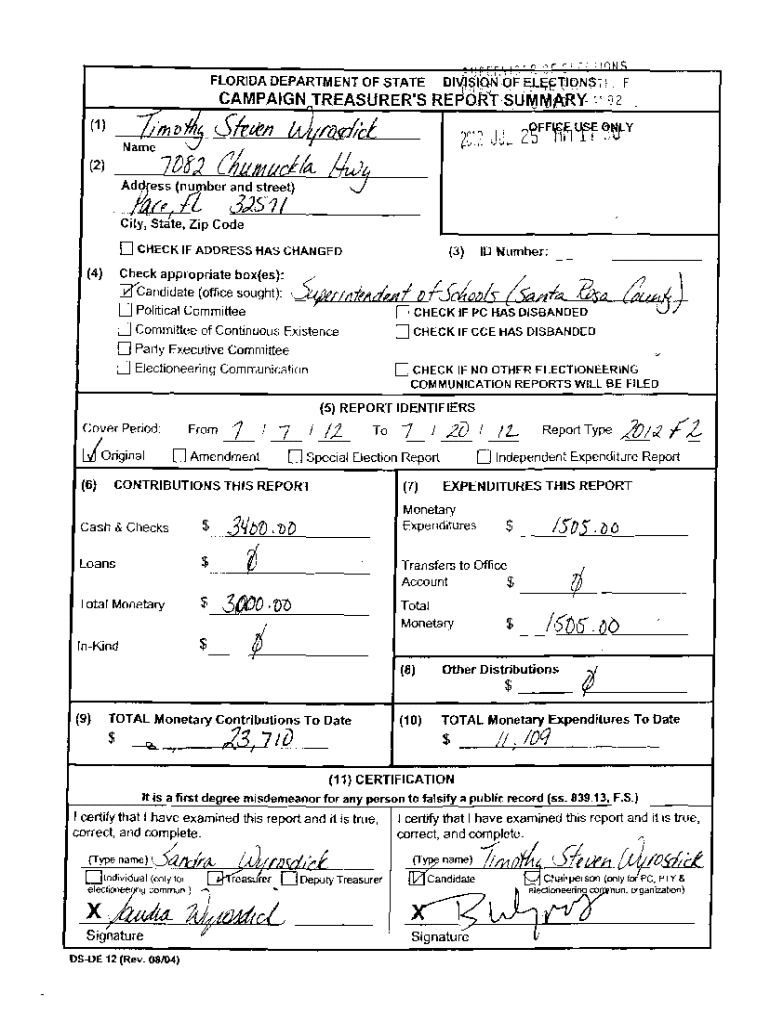 FLORIDA DEPARTMENT OF STATE DIVISION OF ELECTIONS
CAMPAIGN TREASURER'S REPORT SUMMARY
(1) Timothy Steven Wyrosdick
Name
(2) 7082 Chumuckla Hwy
Address (number and street)
Pace, FL 32571
City, State, Zip Code
OFFICE USE ONLY
2012 JUL 25
CHECK IF ADDRESS HAS CHANGED
(3) ID Number:
(4) Check appropriate box(es):
Candidate (office sought): Superintendent of Schools (Santa Rosa County)
Political Committee CHECK IF PC HAS DISBANDED
Committee of Continuous Existence CHECK IF CCE HAS DISBANDED
Party Executive Committee
Electioneering Communication CHECK IF NO OTHER ELECTIONEERING
COMMUNICATION REPORTS WILL BE FILED
(5) REPORT IDENTIFIERS
Cover Period: From 7 / 7 / 12 To 7 / 20 / 12 Report Type 2012 F2
Original Amendment Special Election Report Independent Expenditure Report
(6) CONTRIBUTIONS THIS REPORT
Cash & Checks $ 3400.00
Loans $ 0
Total Monetary $ 3000.00
In-Kind $ 0
(7) EXPENDITURES THIS REPORT
Monetary
Expenditures $ 1505.00
Transfers to Office
Account $ 0
Total
Monetary $ 1505.00
(8) Other Distributions
$ 0
(9) TOTAL Monetary Contributions To Date
$ 23,710
(10) TOTAL Monetary Expenditures To Date
$ 11,109
(11) CERTIFICATION
It is a first degree misdemeanor for any person to falsify a public record (ss. 839.13, F.S.)
I certify that I have examined this report and it is true,
correct, and complete.
(Type name) Sandra Wyrosdick
Individual (only for
electioneering commun.) Treasurer Deputy Treasurer
X Sandra Wyrosdick
Signature
I certify that I have examined this report and it is true,
correct, and complete.
(Type name) Timothy Steven Wyrosdick
Candidate Chairperson (only for PC, PTY &
electioneering commun. organization)
X
Signature
DS-DE 12 (Rev. 08/04)